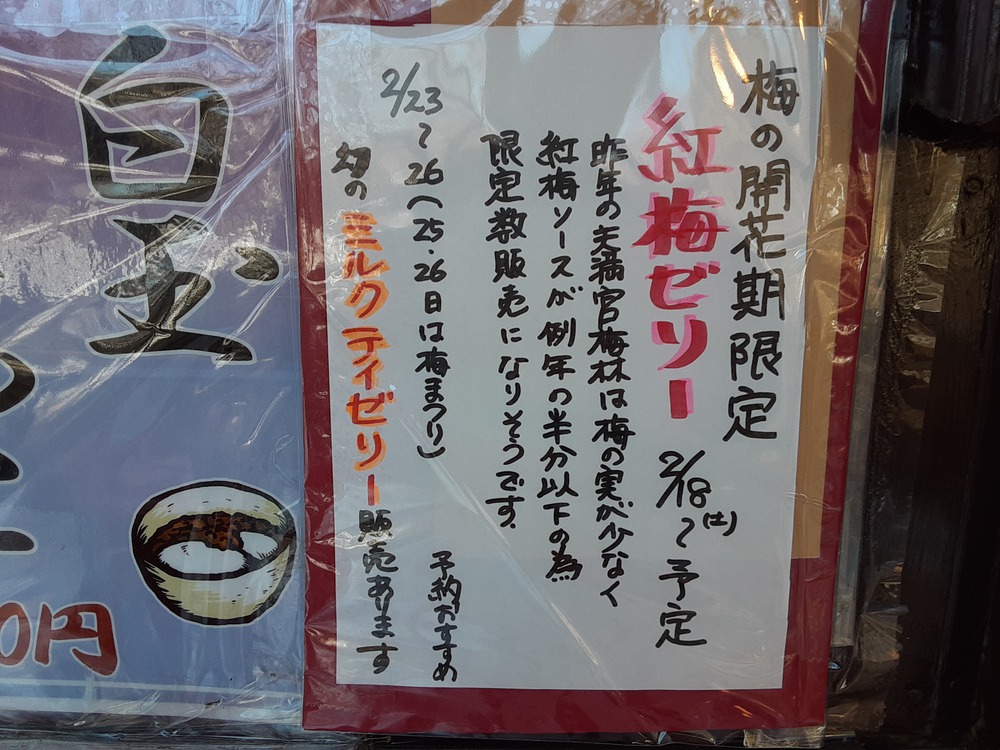 梅の開花期限定
紅梅ゼリー 2/18(土)〜予定
昨年の天満宮梅林は梅の実が少なく
紅梅ソースが例年の半分以下の為
限定数販売になりそうです.
2/23〜26(25・26日は梅まつり)
予約おすすめ
幻のミルクティゼリー販売あります
白玉
0円